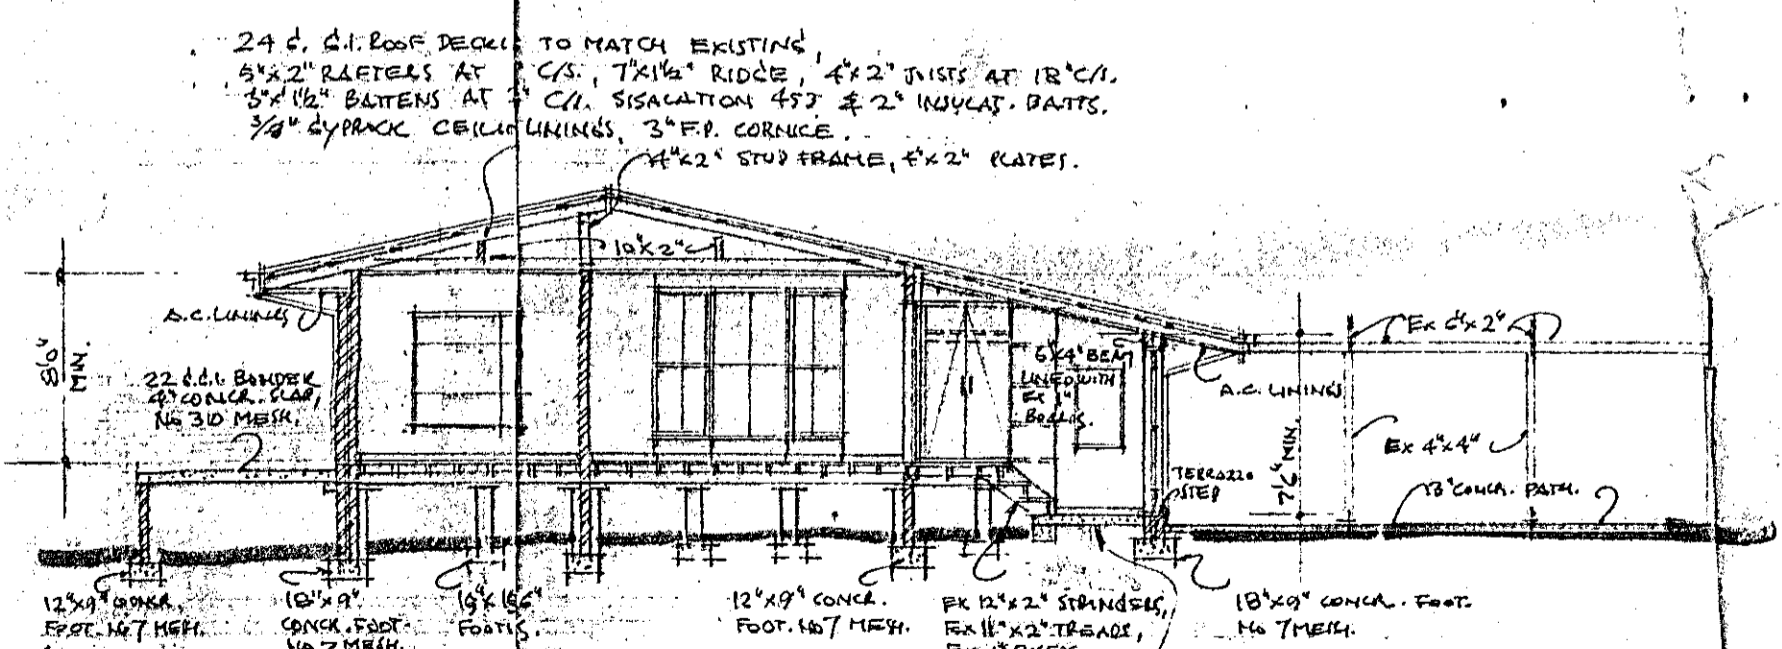 24 G. G.I. ROOF DECK TO MATCH EXISTING,
5"x2" RAFTERS AT C/S., 7"x1½" RIDGE, 4"x2" JOISTS AT 18"C/S.
3"x1½" BATTENS AT C/S. SISALATION 453 & 2" INSULAT. BATTS.
3/8" GYPROCK CEILING LININGS, 3" F.P. CORNICE.
4"x2" STUD FRAME, 4"x2" PLATES.
10"x2"
A.C. LININGS
8'0"
MIN.
22 G.G.I. BONDER
4" CONCR. SLAB,
No 310 MESH.
6"x4" BEAM
LINED WITH
EX 1"
BOARDS.
EX 6"x2"
A.C. LININGS
EX 4"x4"
7'6" MIN.
TERRAZZO
STEP
3" CONCR. PATH.
12"x9" CONCR.
FOOT. No 7 MESH.
18"x9"
CONCR. FOOT.
No 7 MESH.
FOOT'S.
12"x9" CONCR.
FOOT. No 7 MESH.
EX 12"x2" STRINGERS,
EX 11"x2" TREADS,
18"x9" CONCR. FOOT.
No 7 MESH.